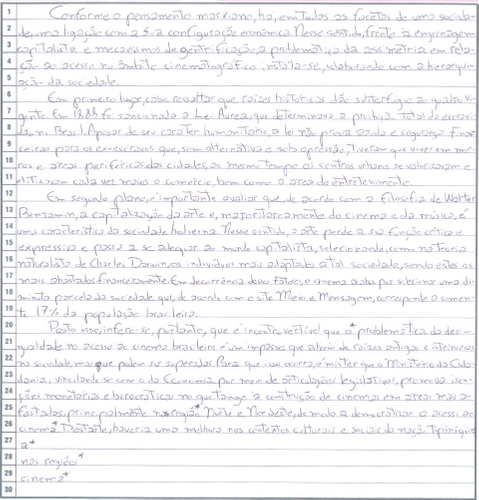 1 Conforme o pensamento marxiano, há, em todas as facetas de uma socieda-
2 de, uma ligação com a sua configuração econômica. Nesse sentido, frente à engrenagem
3 capitalista e mecanismos de gentrificação, a problemática da assimetria em rela-
4 ção a acesso no âmbito cinematográfico instala-se, colaborando com a hierarqui-
5 zação da sociedade.
6 Em primeiro lugar, cabe ressaltar que raízes históricas dão subterfúgio ao quadro vi-
7 gente. Em 1888 foi sancionada a Lei Áurea, que determinava a proibição total da escravi-
8 dão no Brasil. Apesar de seu caráter humanitário, a lei não previa ajuda e segurança finan-
9 ceiras para os ex-escravos que, sem alternativa e sob opressão, tiveram que viver em mor-
10 ros e áreas periféricas das cidades, ao mesmo tempo os centros urbanos se valorizavam e
11 elitizavam cada vez mais o comércio, bem como a área de entretenimento.
12 Em segundo plano, é importante avaliar que, de acordo com a filosofia de Walter
13 Benjamin, a capitalização da arte e, majoritariamente do cinema e da música, é
14 uma característica da sociedade hodierna. Nesse sentido, a arte perde a sua função crítica e
15 expressiva e passa a se adequar ao mundo capitalista, selecionando, como na teoria
16 naturalista de Charles Darwin, os indivíduos mais adaptados a tal sociedade, sendo estes os
17 mais abastados financeiramente. Em decorrência desse fator, o cinema acaba por selecionar uma di-
18 minuta parcela da sociedade que, de acordo com o site Meio e Mensagem, corresponde a somen-
19 te 17% da população brasileira.
20 Posto isso, infere-se, portanto, que é incontrovertível que a* problemática da desi-
21 gualdade no acesso ao cinema brasileiro é um impasse que advém de raízes antigas e intrínsecas
22 na sociedade, mas que podem ser superadas. Para que isso ocorra, é mister que o Ministério da Cida-
23 dania, vinculando-se com o da Economia por meio de articulações legislativas, promova isen-
24 ções monetária e burocrática no que tange à construção de cinemas em áreas mais a-
25 fastadas, principalmente nas região* Norte e Nordeste, de modo a democratizar o acesso ao
26 cinema* Destarte, haveria uma melhora nos contextos culturais e sociais da nação tupiniquim
27 a*
28 nas regiões*
29 cinema*
30